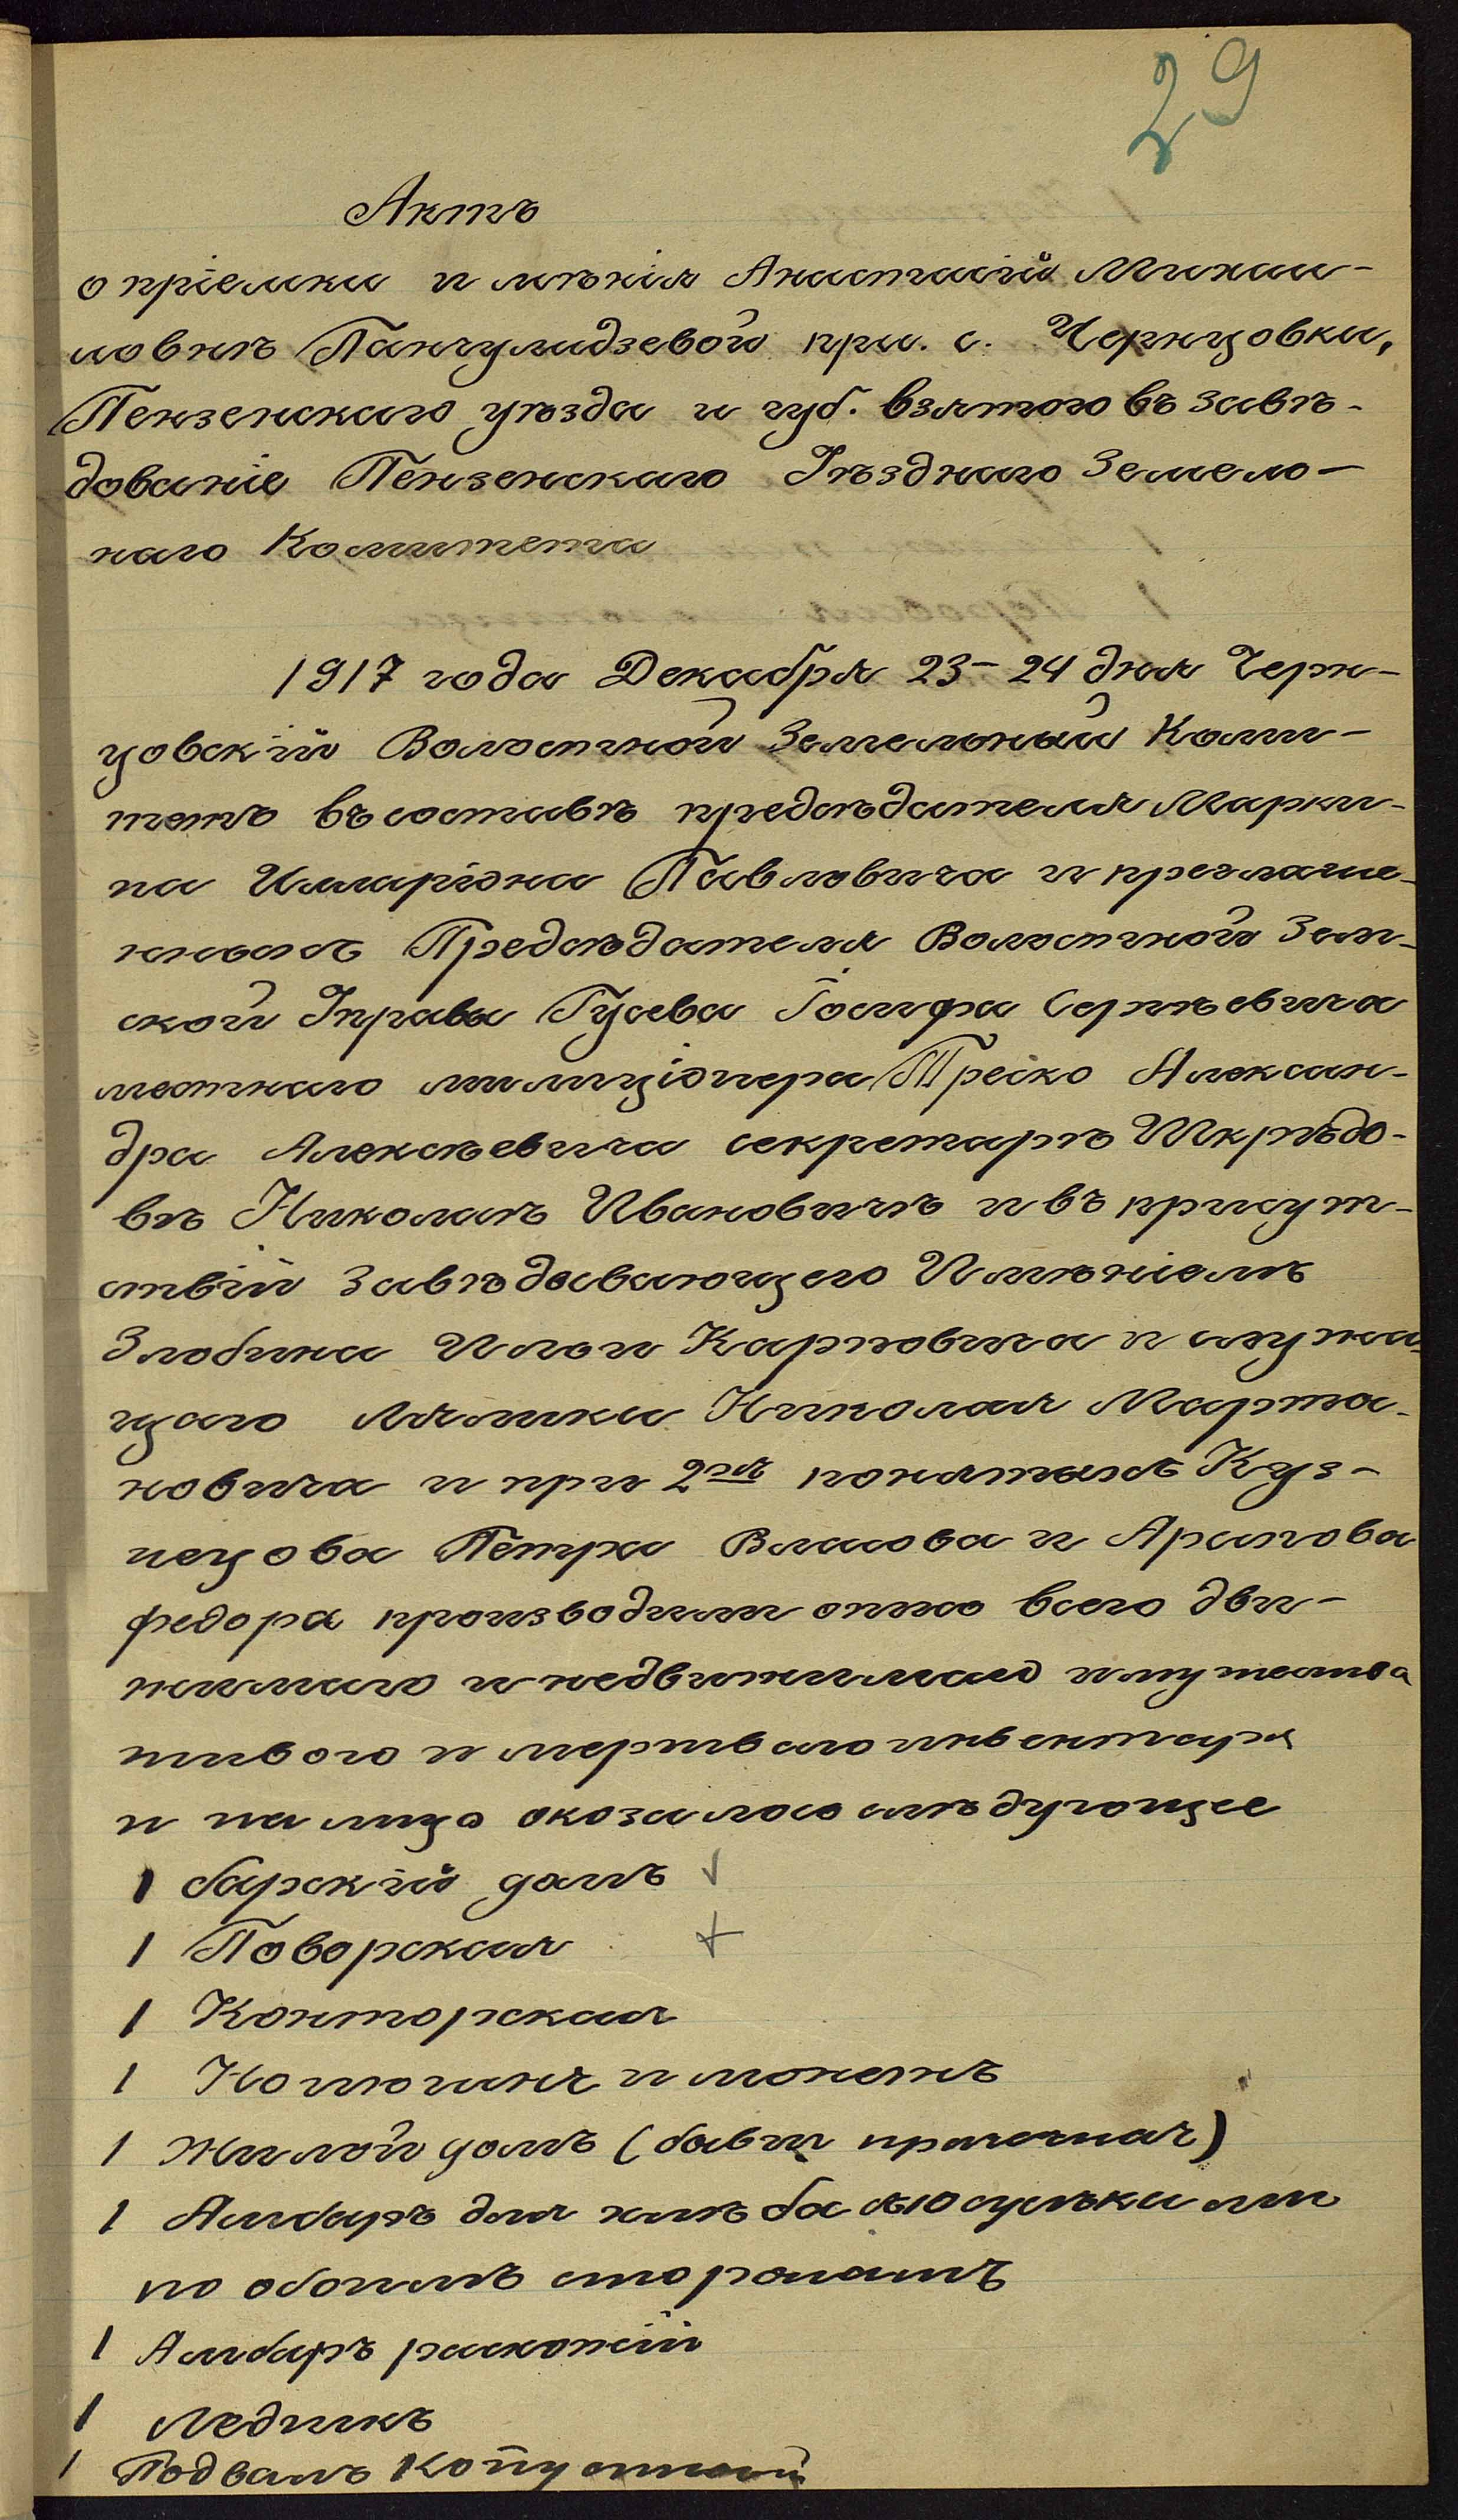 29
Актъ
о пріемки имѣнія Анастасій Михаи-
ловнѣ Панчулидзевой при. с. Чернцовки,
Пензенскаго уѣзда и губ. взятого въ завѣ-
дованіе Пензенскаго Уѣзднаго Земель-
наго Комитета
1917 года Декабря 23-24 дня Черн-
цовскій Волостной Земельный Коми-
тетъ въ составѣ предсѣдателя Марки-
на Илларіона Павловича и преглаше-
нныхъ Предсѣдателя Волостной Зем-
ской Управы Гусева Іосифа Сергѣевича
местнаго милиціонера Алексан-
дра Алексѣевича секретарѣ
вѣ Николаѣ Ивановичѣ и въ присут-
ствій Завѣдовающего Имѣніемъ
Злобина Ильи Карповича и служа-
щаго Лялики Николая Марты-
новича и при 2хъ понятыхъ Куз-
нецова Петра Власова и Арапова
Федора производили опись всего дви-
жимаго и недвижимаго имущества
живого и мертваго инвентаря
и на лицо оказалось слѣдующее
1 барскій домъ
1 Поворская
1 Конторская
1 Конюшня и
1 Жилой домъ (бывш прачечная)
1 Амбаръ для хлѣба съ 10 сусѣками
по обоимъ сторонамъ
1 Амбаръ расхожій
1 Ледникъ
1 Подвалъ Копустный